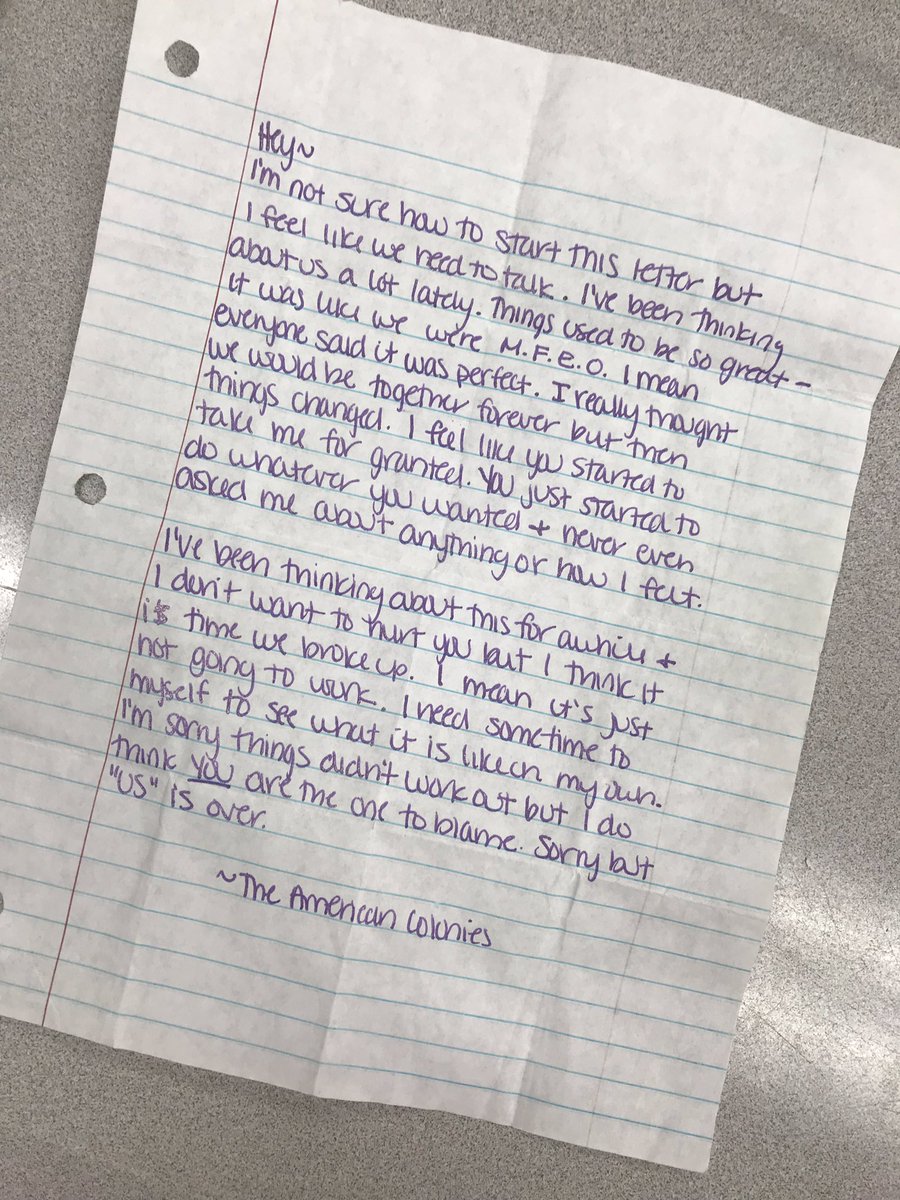 Hey~
I'm not sure how to start this letter but
I feel like we need to talk. I've been thinking
about us a lot lately. Things used to be so great –
it was like we were M.F.E.O. I mean
everyone said it was perfect. I really thought
we would be together forever but then
things changed. I feel like you started to
take me for granted. You just started to
do whatever you wanted + never even
asked me about anything or how I felt.
I've been thinking about this for awhile +
I don't want to hurt you but I think it
is time we broke up. I mean it's just
not going to work. I need some time to
myself to see what it is like on my own.
I'm sorry things didn't work out but I do
think you are the one to blame. Sorry but
"US" is over.
~The American Colonies